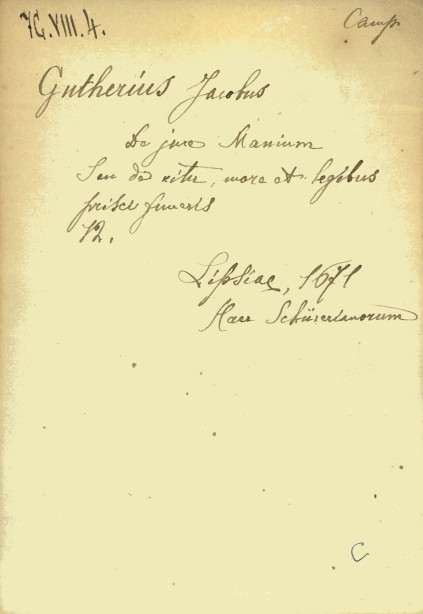 7G.VIII.4.
Camp.
Gutherius Jacobus
De jure Manium
Seu de ritu, more et legibus
prisci funeris
12.
Lipsiae, 1671
Haer Schürerianorum
C